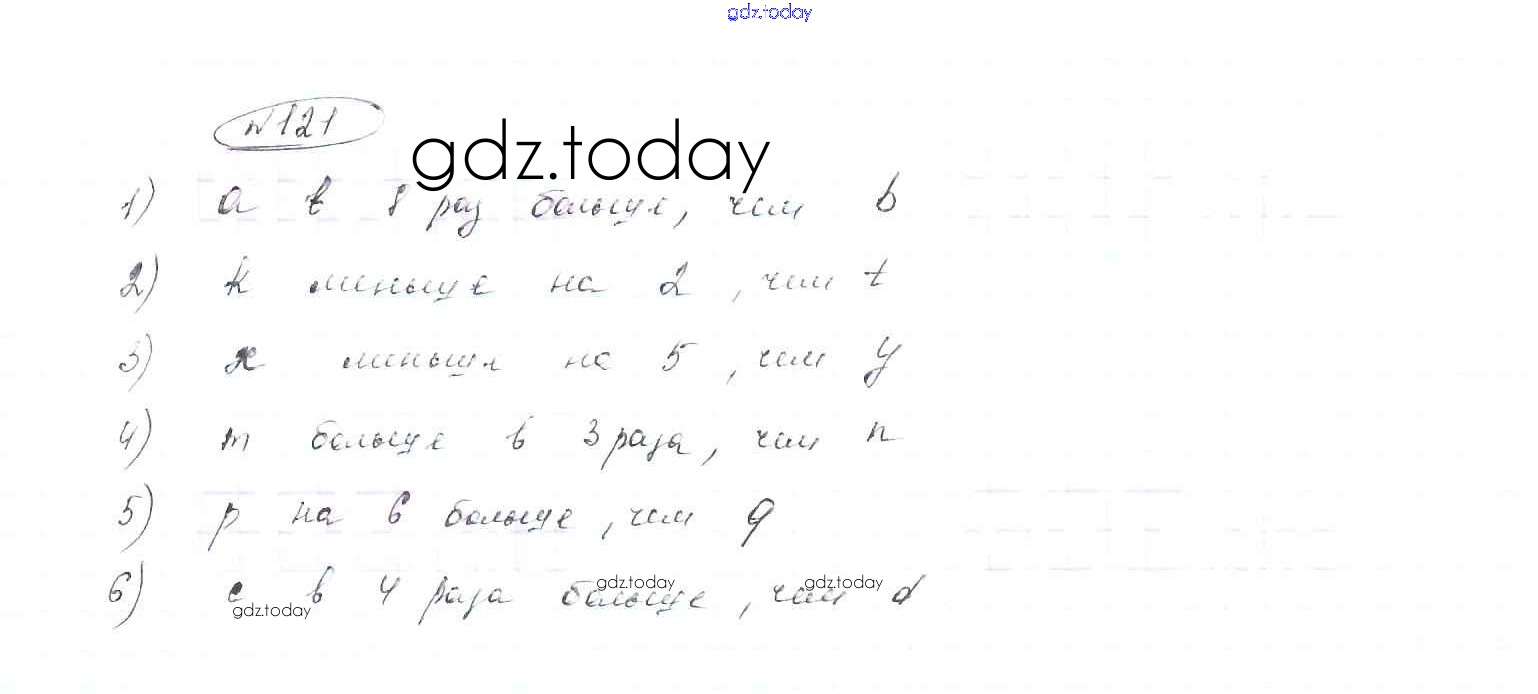 gdz.today
№121
gdz.today
1) a в 8 раз больше, чем b
2) k меньше на 2, чем t
3) x меньше на 5, чем y
4) m больше в 3 раза, чем n
5) p на 6 больше, чем q
6) c в 4 раза больше, чем d
gdz.today gdz.today gdz.today